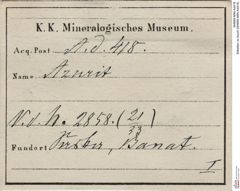 K. K. Mineralogisches Museum.
Acq. Post. A. d. 418.
Name Azurit
V. d. h. 2858. (21/33)
Fundort , Banat.
I